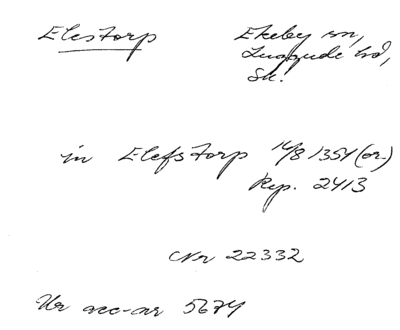 Elestorp Ekeby sn,
Luggude hd,
Sk.
in Elefstorp 14/8 1354 (or.)
Rep. 2413
Nr 22332
Ur acc-nr 5674